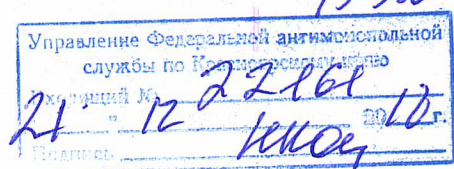 Управление Федеральной антимонопольной
службы по Красноярскому краю
Входящий № 22161
21 " 12 2010 г.
Подпись